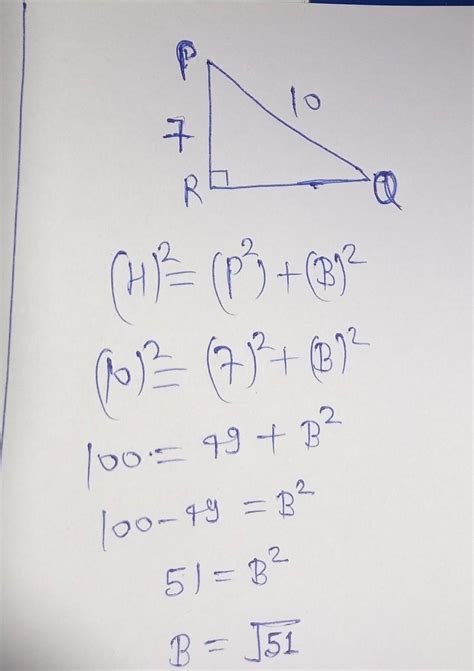 P
10
7
R
Q
(H)² = (P²) + (B)²
(10)² = (7)² + (B)²
100 = 49 + B²
100 - 49 = B²
51 = B²
B = √51